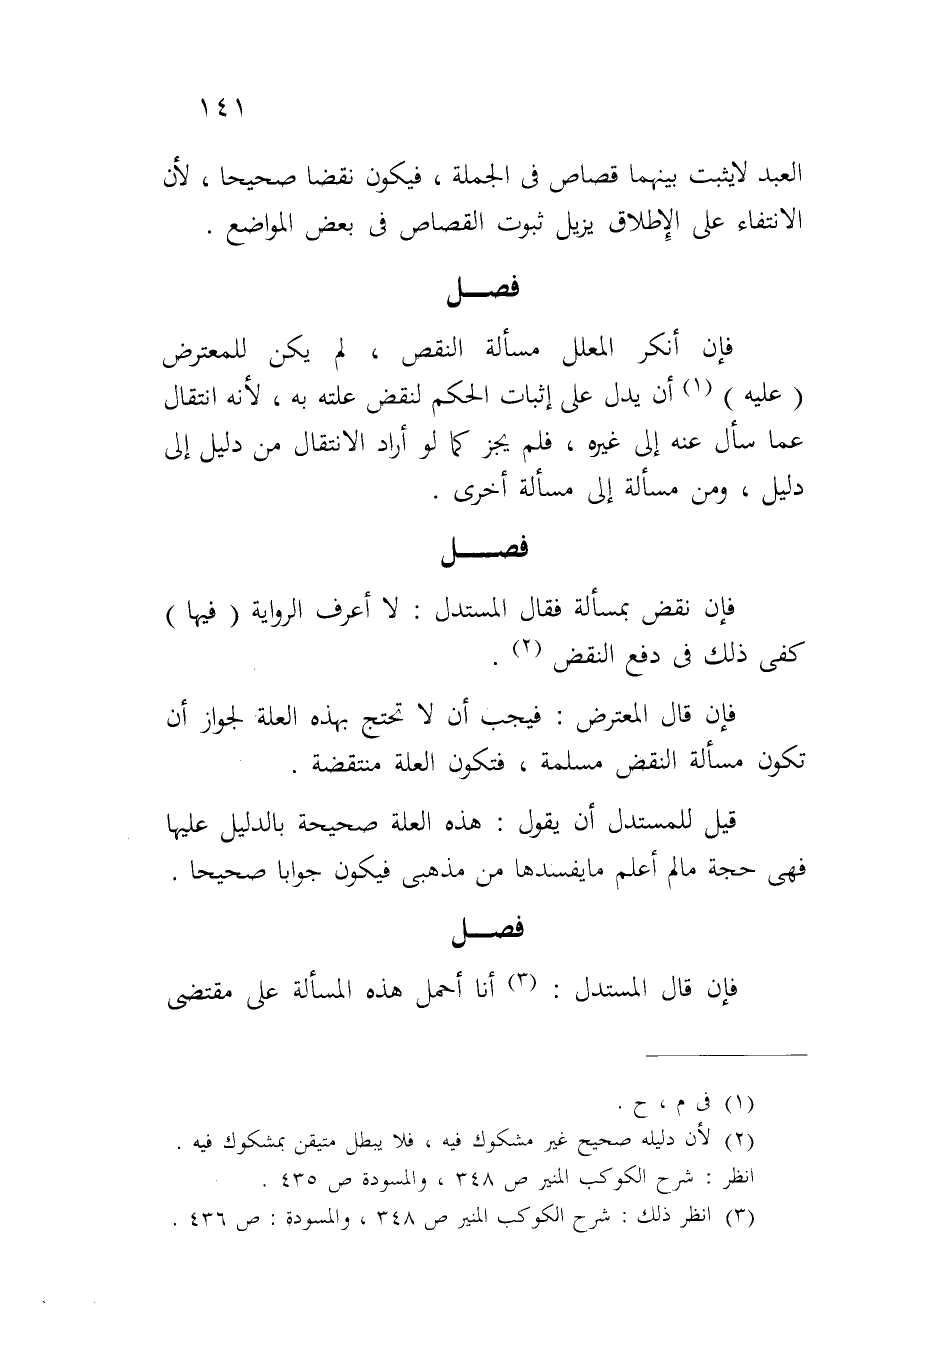 ١٤١
العبد لايثبت بينهما قصاص فى الجملة ، فيكون نقضا صحيحا ، لأن
الانتفاء على الإطلاق يزيل ثبوت القصاص فى بعض المواضع .
فصـــل
فإن أنكر المعلل مسألة النقص ، لم يكن للمعترض
( عليه ) (١) أن يدل على إثبات الحكم لنقض علته به ، لأنه انتقال
عما سأل عنه إلى غيره ، فلم يجز كما لو أراد الانتقال من دليل إلى
دليل ، ومن مسألة إلى مسألة أخرى .
فصـــل
فإن نقض بمسألة فقال المستدل : لا أعرف الرواية ( فيها )
كفى ذلك فى دفع النقض (٢) .
فإن قال المعترض : فيجب أن لا تحتج بهذه العلة لجواز أن
تكون مسألة النقض مسلمة ، فتكون العلة منتقضة .
قيل للمستدل أن يقول : هذه العلة صحيحة بالدليل عليها
فهى حجة مالم أعلم مايفسدها من مذهبى فيكون جوابا صحيحا .
فصـــل
فإن قال المستدل : (٣) أنا أحمل هذه المسألة على مقتضى
(١) فى م ، ح .
(٢) لأن دليله صحيح غير مشكوك فيه ، فلا يبطل متيقن بمشكوك فيه .
انظر : شرح الكوكب المنير ص ٣٤٨ ، والمسودة ص ٤٣٥ .
(٣) انظر ذلك : شرح الكوكب المنير ص ٣٤٨ ، والمسودة : ص ٤٣٦ .